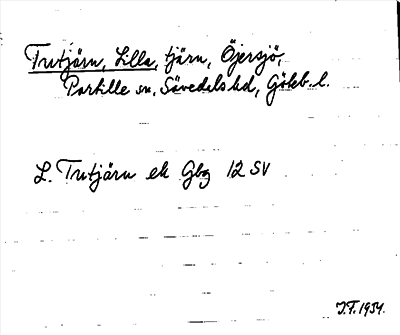 Trutjärn, Lilla, tjärn, Öjersjö,
Partille sn, Sävedals hd, Göteb. l.
L. Trutjärn ek Gbg 12 SV
J.F. 1934.